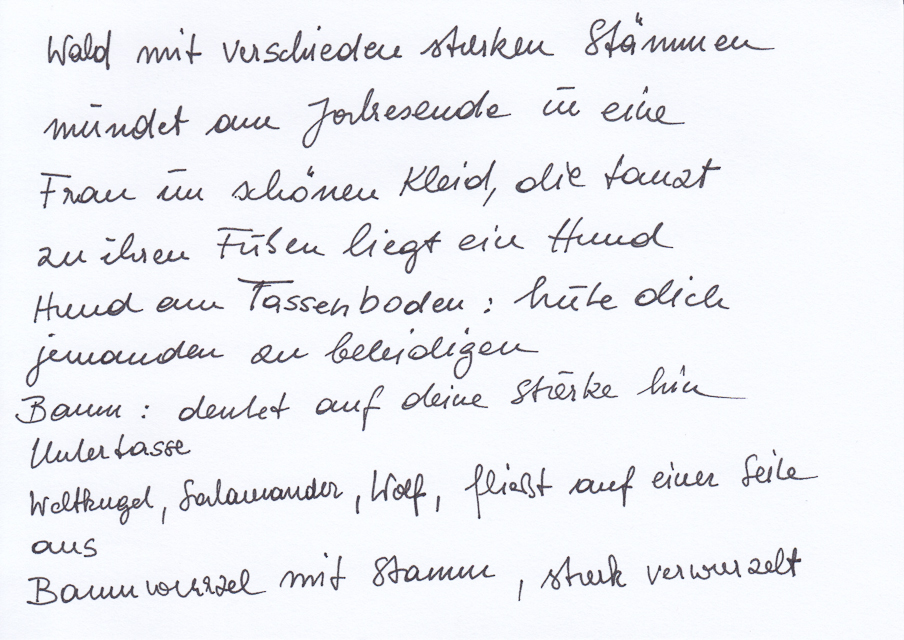 Wald mit verschieden starken Stämmen
mündet am Jahresende in eine
Frau im schönen Kleid, die tanzt
zu ihren Füßen liegt ein Hund
Hund am Tassenboden : hüte dich
jemanden zu beleidigen
Baum : deutet auf deine Stärke hin
Untertasse
Weltkugel, Salamander, Wolf, fließt auf einer Seite
aus
Baumwurzel mit Stamm, stark verwurzelt